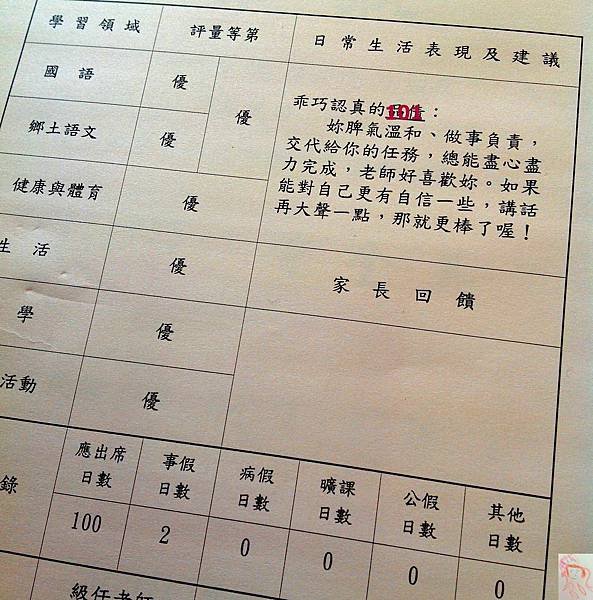 學習領域 評量等第 日常生活表現及建議
國語 優 優
鄉土語文 優
健康與體育 優
生活 優
學 優
活動 優
乖巧認真的101：
妳脾氣溫和、做事負責，
交代給你的任務，總能盡心盡
力完成，老師好喜歡妳。如果
能對自己更有自信一些，講話
再大聲一點，那就更棒了喔！
家長回饋
錄
應出席日數 事假日數 病假日數 曠課日數 公假日數 其他日數
100 2 0 0 0 0
級任老師